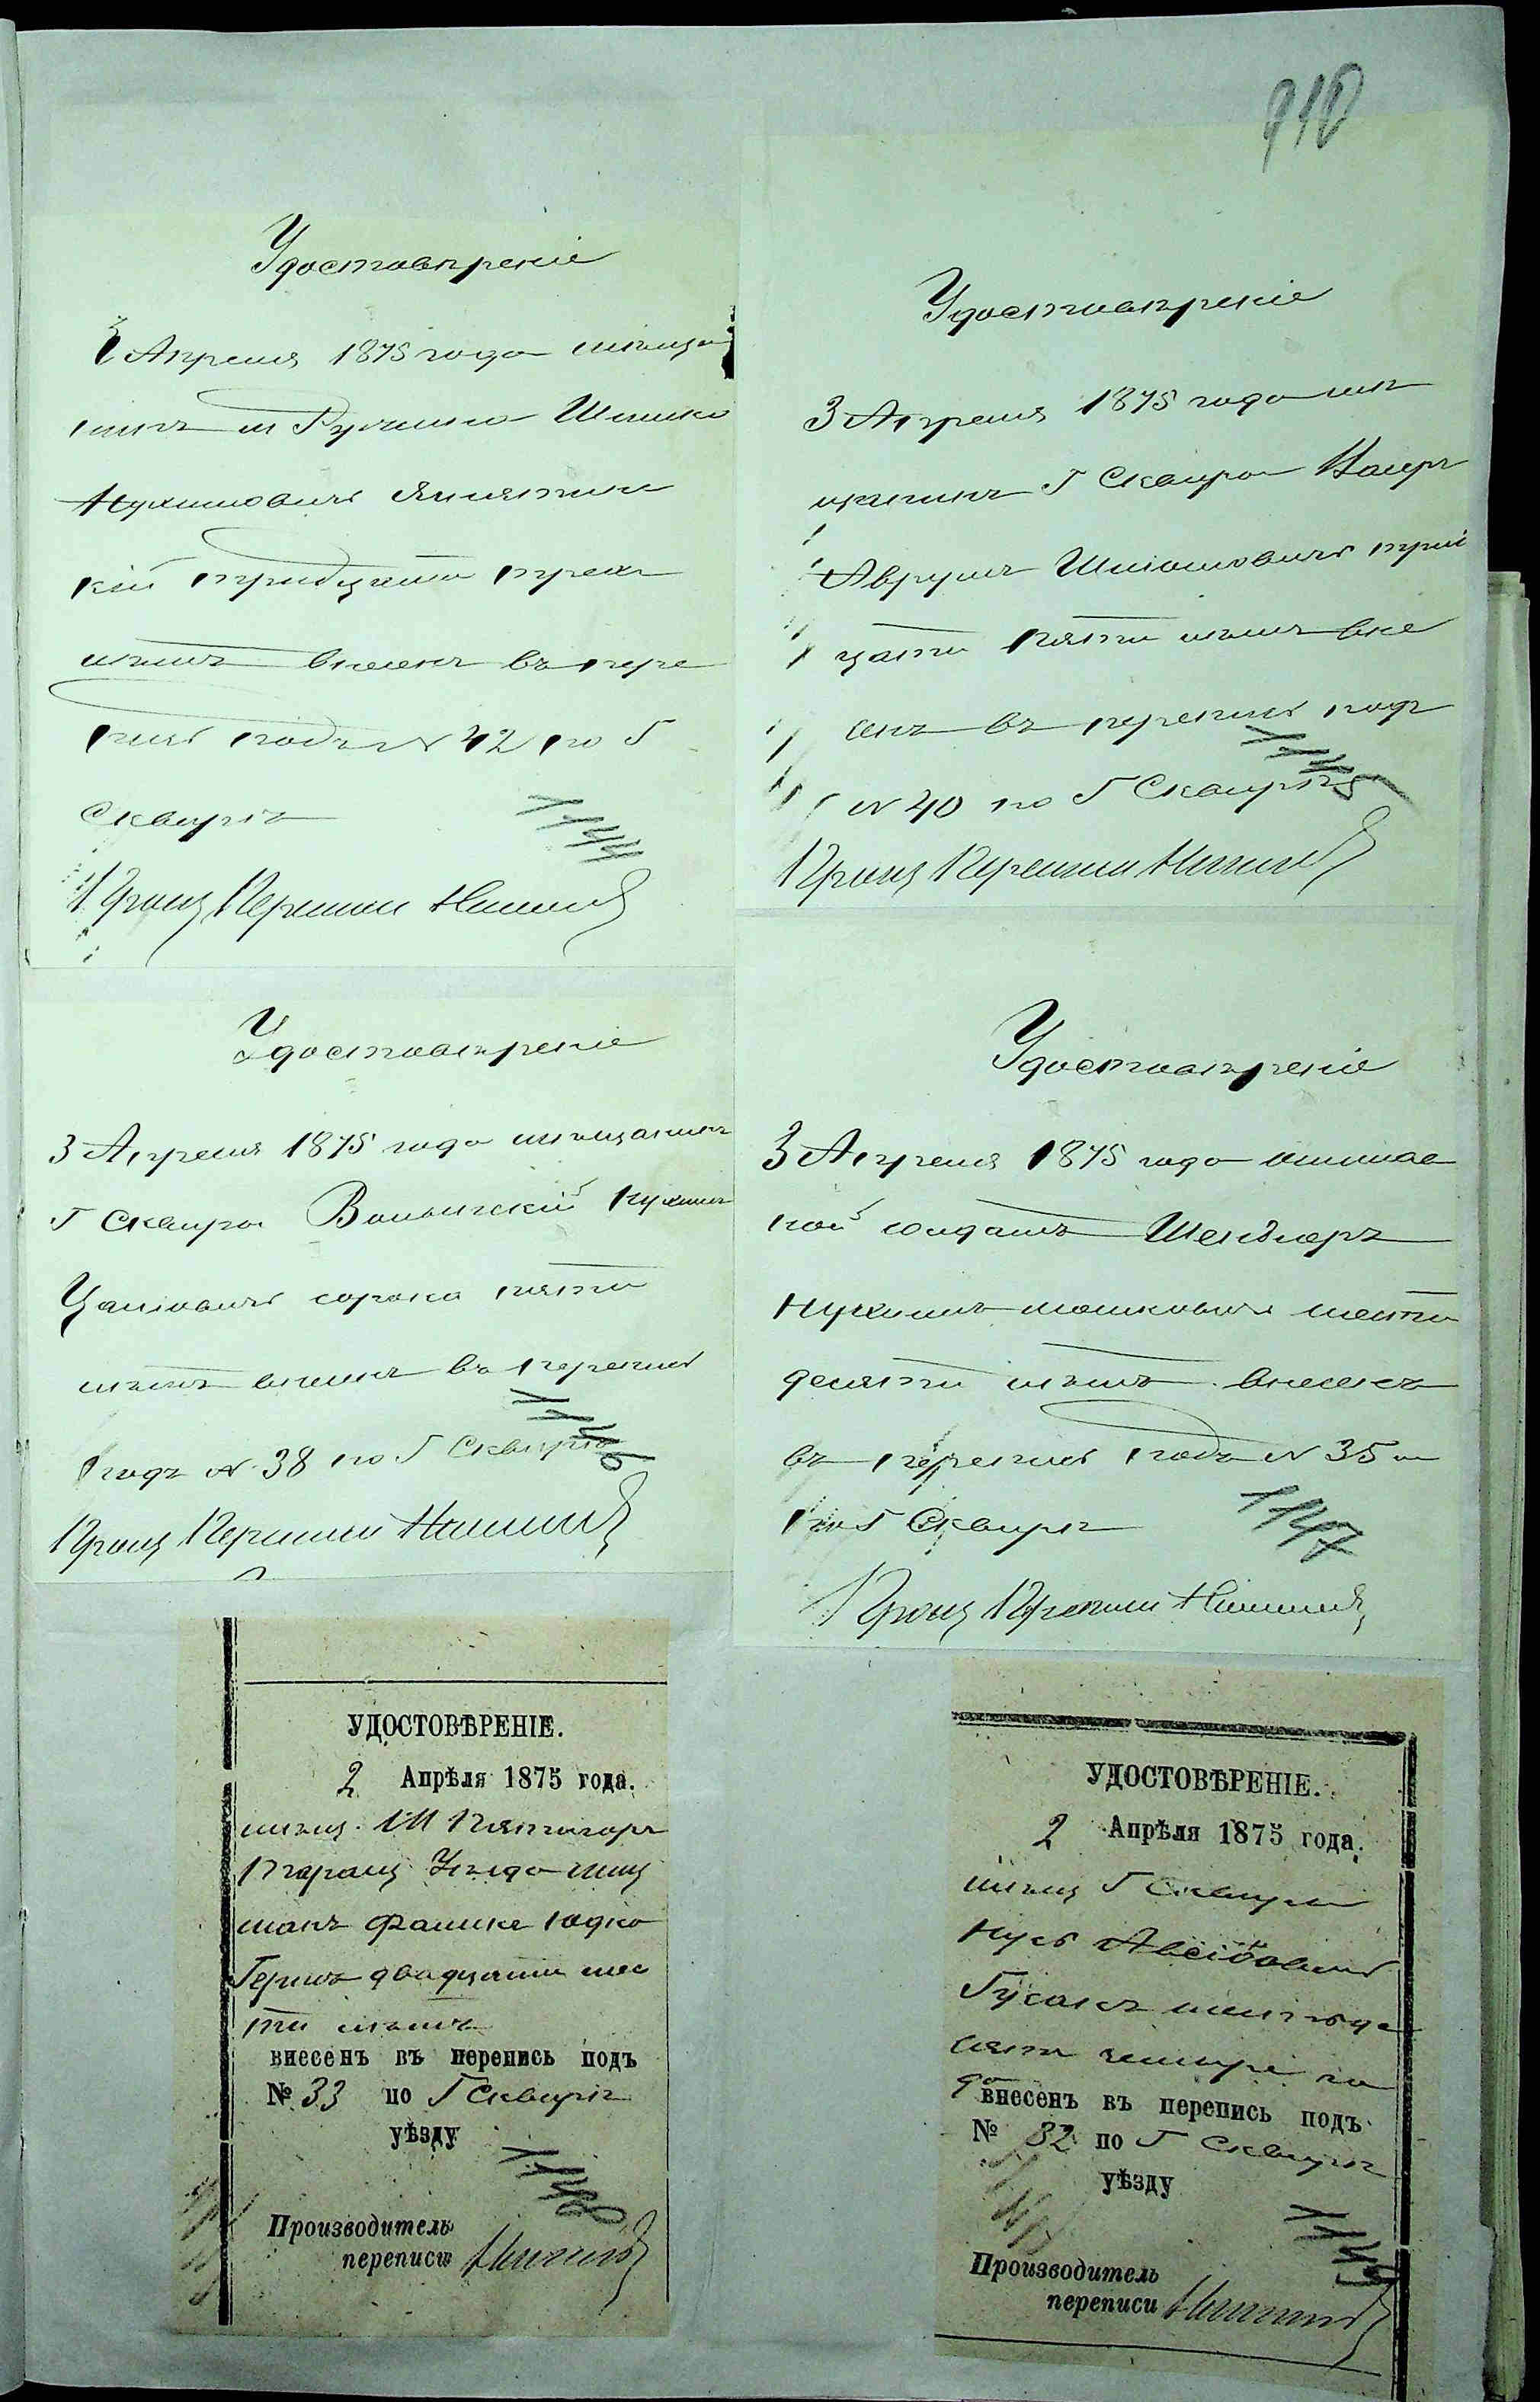 910
Удостовѣреніе
3 Апреля 1875 года мѣща
нинъ м Ружина Шмилю
Нухимовичъ
кій тридцати трехъ
лѣтъ внесенъ въ пере
пись подъ № 42 по Г
Сквирѣ
1144
Произ Переписи
Удостовѣреніе
3 Апреля 1875 года мѣ
щанинъ Г Сквира
Аврумъ Шліомовичъ трид
цати пяти лѣтъ вне
сенъ въ перепись подъ
№ 40 по Г Сквирѣ
1145
Произ Переписи
Удостовѣреніе
3 Апреля 1875 года мѣщанинъ
Г Сквира Вольнскій Нухим
сорока пяти
лѣтъ внесенъ въ перепись
подъ № 38 по Г Сквирѣ
1146
Произ Переписи
Удостовѣреніе
3 Апреля 1875 года
ной солдатъ Шендлеръ
Нухимъ Мошковичъ шести
десяти лѣтъ внесенъ
въ перепись подъ № 35
по Г Сквирѣ
1147
Произ Переписи
УДОСТОВѢРЕНІЕ.
2 Апрѣля 1875 года.
мѣщ. М Пятигоръ
Таращ Уѣзда
Юдко
Гершъ двадцати шес
ти лѣтъ
внесенъ въ перепись подъ
№ 33 по Г Сквирѣ
уѣзду
1148
Производитель
переписи
УДОСТОВѢРЕНІЕ.
2 Апрѣля 1875 года.
мѣщ Г Сквира
Нусь
Гусакъ шестьде
сятъ четыре го
да
внесенъ въ перепись подъ
№ 32 по Г Сквирѣ
уѣзду
1149
Производитель
переписи